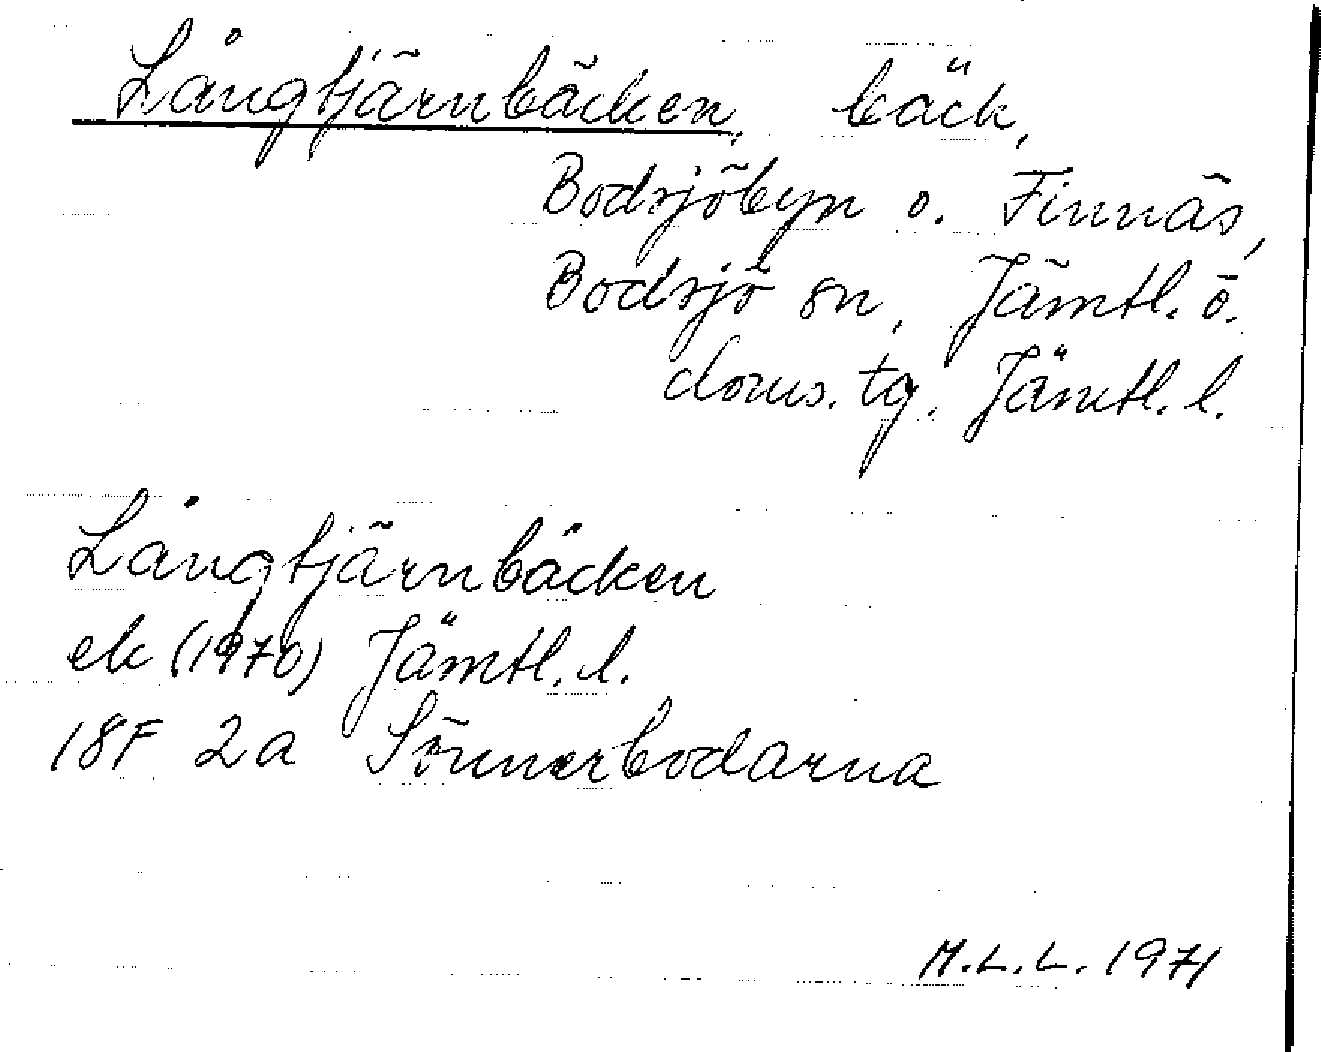 Långtjärnbäcken, bäck,
Bodsjöbyn o. Finnäs,
Bodsjö sn, Jämtl. ö.
doms. tg. Jämtl. l.
Långtjärnbäcken
ek (1970) Jämtl. l.
18F 2a Sönnerbodarna
M.L.L. 1971